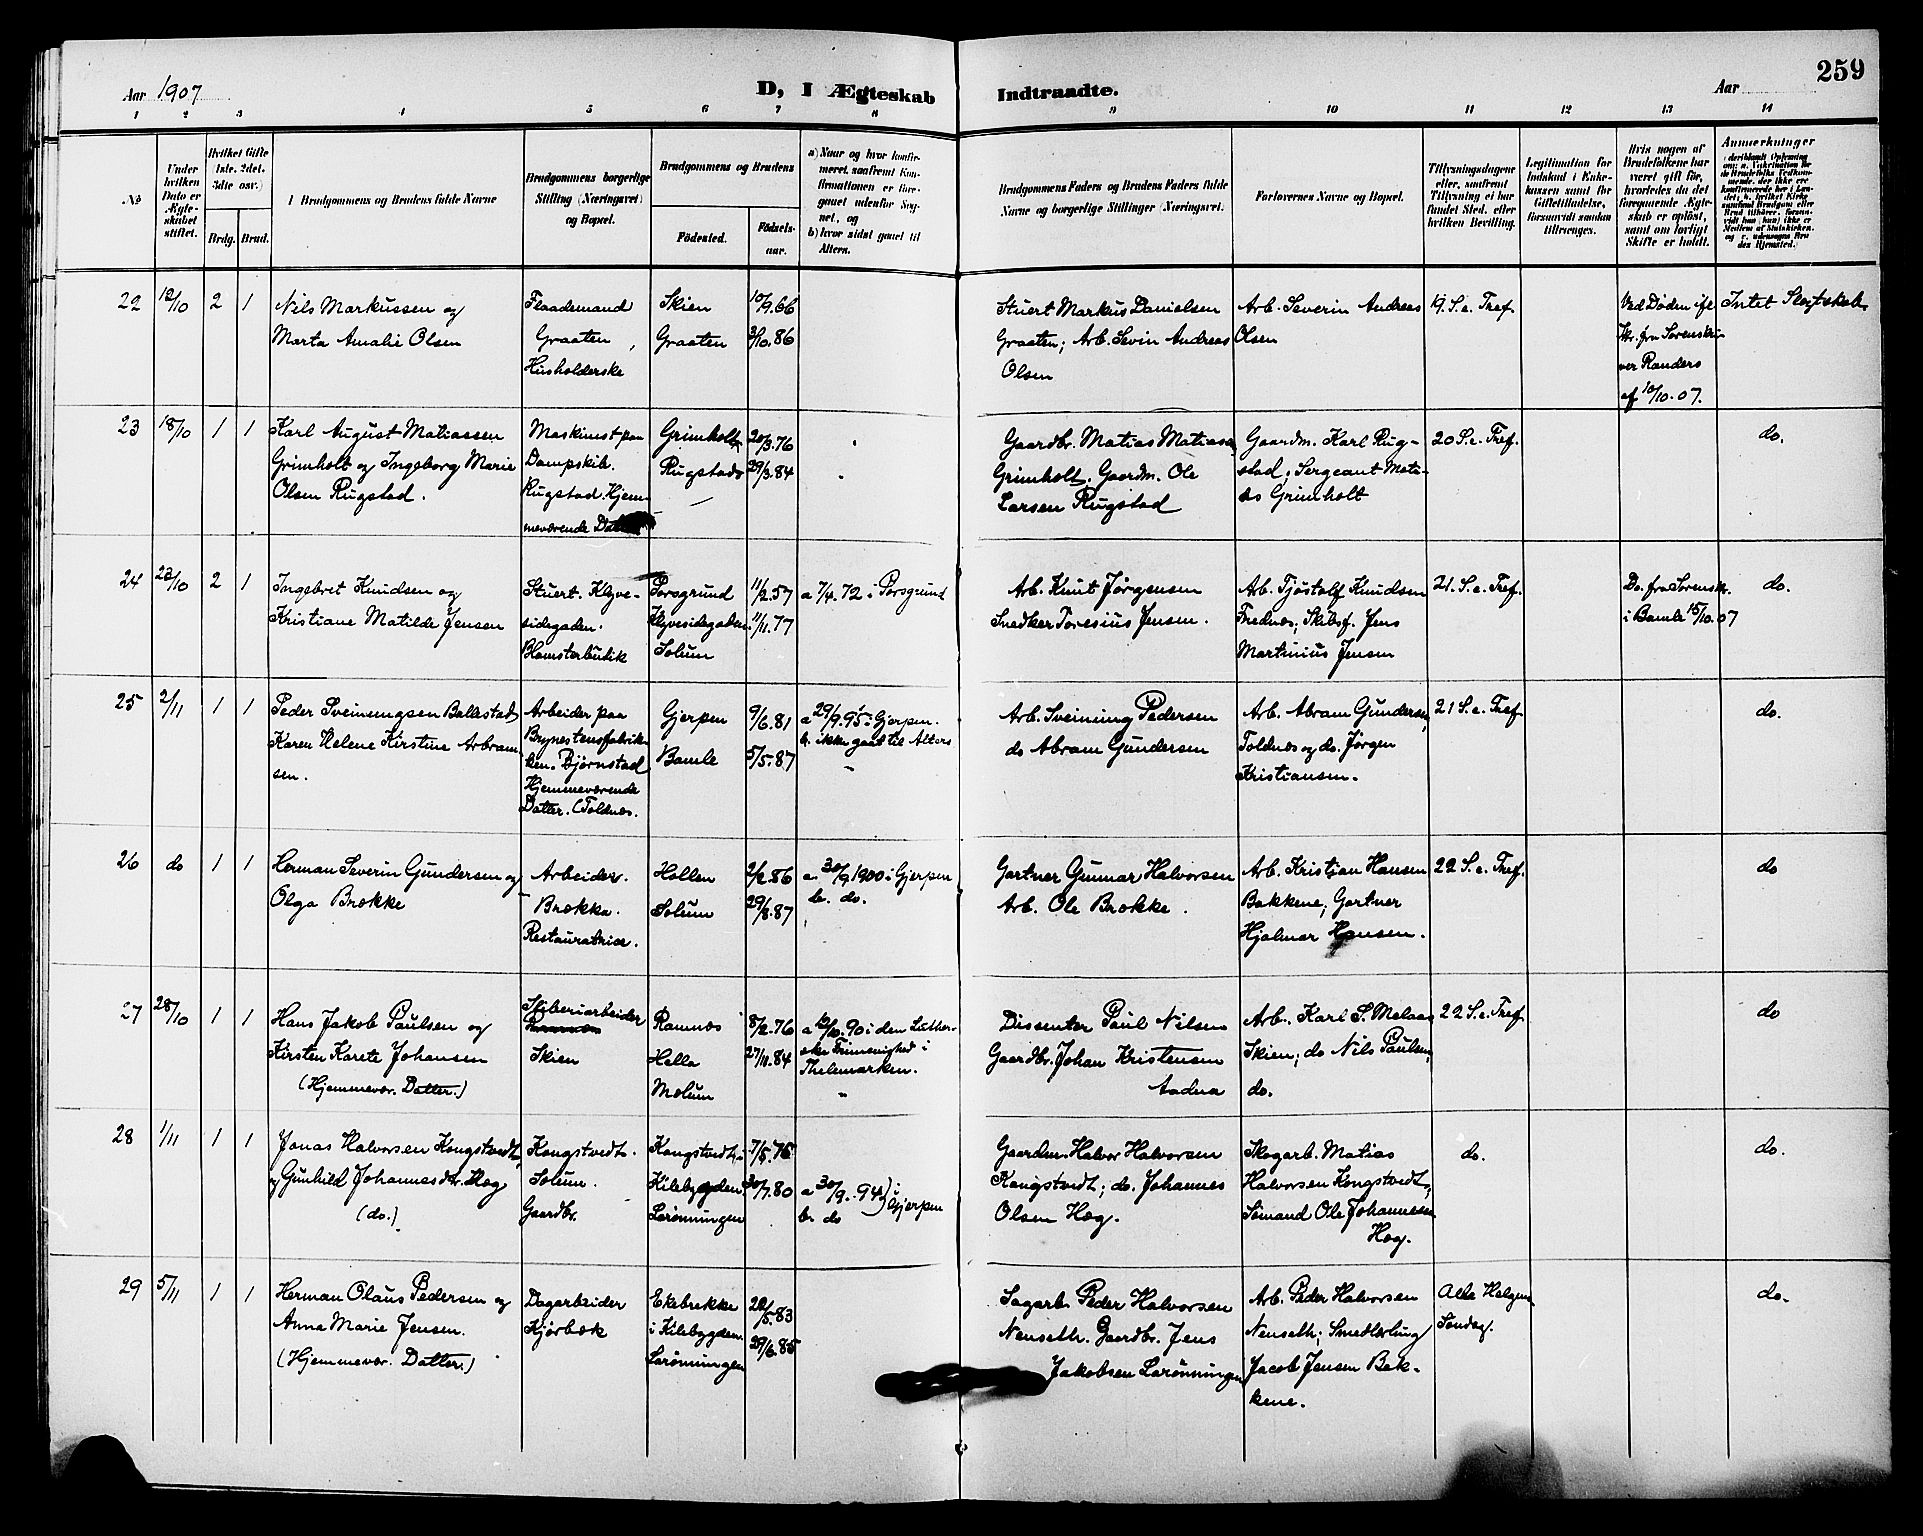 259
Aar 1907
D, I Ægteskab Indtraadte.
Aar
1 2 3 4 5 6 7 8 9 10 11 12 13 14
№
Under hvilken Dato er Ægteskabet stiftet.
Hvilket Gifte (1ste, 2det, 3die osv.)
Brdg. Brud.
I Brudgommens og Brudens fulde Navne
Brudgommens borgerlige Stilling (Næringsvei) og Bopæl.
Brudgommens og Brudens
Fødested.
Fødselsaar.
a) Naar og hvor konfirmeret, saafremt Konfirmationen er foregaaet udenfor Sognet, og
b) hvor sidst gaaet til Alters.
Brudgommens Faders og Brudens Faders fulde Navne og borgerlige Stillinger (Næringsvei.
Forlovernes Navne og Bopæl.
Tillysningsdagene eller, saafremt Tillysning ei har fundet Sted, efter hvilken Bevilling.
Legitimation for Indskud i Enkekassen samt for Giftetilladelse, forsaavidt saadan tiltrænges.
Hvis nogen af Brudefolkene har været gift før, hvorledes da det foregaaende Ægteskab er opløst, samt om lovligt Skifte er holdt.
Anmærkninger
22 12/10 2 1
Nils Markussen og
Marta Amalie Olsen
Flaademand
Graaten,
Husholderske
Skien
Graaten
10/9.66
3/10.86
Stuert Markus Danielsen
Graaten; Arb. Sevin Andreas
Olsen
Arb. Severin Andreas
Olsen
19 S. e. Tref.
Ved Døden ifl
Skr. fra Sorenskri
ver Randers
af 10/10.07.
Intet Slegtskab
23 18/10 1 1
Karl August Matiassen
Grimholt og Ingeborg Marie
Olsen Rugstad.
Maskinist paa
Dampskib.
Rugstad. Hjem
meværende Datter
Grimholt
Rugstad
20/3.76
29/3.84
Gaardbr. Matias Matiasen
Grimholt. Gaardm. Ole
Larsen Rugstad
Gaardm. Karl Rug-
stad; Sergeant Mati-
as Grimholt
20 S. e. Tref.
do.
24 23/10 2 1
Ingebret Knudsen og
Kristiane Matilde Jensen
Stuert. Klyve-
sidegaden.
Blomsterbutik
Porsgrund
Klyvesidegaden.
Solum
11/2.57
11/11.77
a 7/4.72 i Porsgrund
Arb. Knut Jørgensen
Snedker Toresius Jensen.
Arb. Tjøstolf Knudsen
Frednes; Skibsf. Jens
Martinius Jensen
21. S. e. Tref.
Do. fra Sorenskr.
i Bamle 15/10.07
do.
25 2/11 1 1
Peder Sveinungsen Ballestad
Karen Helene Kirstine Abram
sen.
Arbeider paa
Brynestensfabrik
ken. Bjørnstad
Hjemmeværende
Datter. (Toldnes.
Gjerpen
Bamle
9/6.81
5/5.87
a 29/9.95 i Gjerpen.
b. ikke gaat til Alters
"
Arb. Sveinung Pedersen
do Abram Gundersen
Arb. Abram Gundersen,
Toldnes og do. Jørgen
Kristiansen.
21 S. e. Tref
do.
26 do 1 1
Herman Severin Gundersen og
Olga Brække
Arbeider.
Brække.
Restauratrice.
Hollen
Solum
2/2.86
29/8.87
a. 30/9 1900 i Gjerpen
b. do.
Gartner Gunnar Halvorsen
Arb. Ole Brække.
Arb. Kristian Hansen
Bakkene; Gartner
Hjalmar Hansen.
22 S. e. Tref.
do
27 28/10 1 1
Hans Jakob Paulsen og
Kirsten Karete Johansen
(Hjemmevær. Datter.)
Sliberiarbeider
Skien
Ramnes
Hella
Melum
8/2.76
27/11.84
a 12/10.90 i den Luther-
ske Frimenighed i
Thelemarken.
"
Dissenter Paul Nilsen
Gaardbr. Johan Kristensen
Aadna
Arb. Karl S. Melaas
Skien; do Nils Paulsen,
do.
22 S. e. Tref.
do
28 1/11 1 1
Jonas Halvorsen Kongstvedt,
og Gunhild Johannesdr. Hæg
(do.)
Kongstvedt.
Solum.
Gaardbr.
Kongstvedt, i
Kilebygden.
Lerønningen
7/5.75
30/7.80
a 30/9.94) i
b. do Gjerpen
Gaardm. Halvor Halvorsen
Kongstvedt; do. Johannes
Olsen Hæg.
Skogarb. Matias
Halvorsen Kongstvedt,
Sømand Ole Johannesen
Hæg.
do.
do.
29 5/11 1 1
Herman Olaus Pedersen og
Anna Marie Jensen.
(Hjemmevær. Datter.)
Dagarbeider
Kjørbæk
Ekebrekke
i Kilebygden.
Lerønningen
28/5.83
29/6.85
Sagarb. Peder Halvorsen
Nenseth. Gaardbr. Jens
Jakobsen Lerønningen
Arb. Peder Halvorsen
Nenseth; Smedlærling
Jacob Jensen Bak-
kene.
Alle Helgens
Søndag.
do.